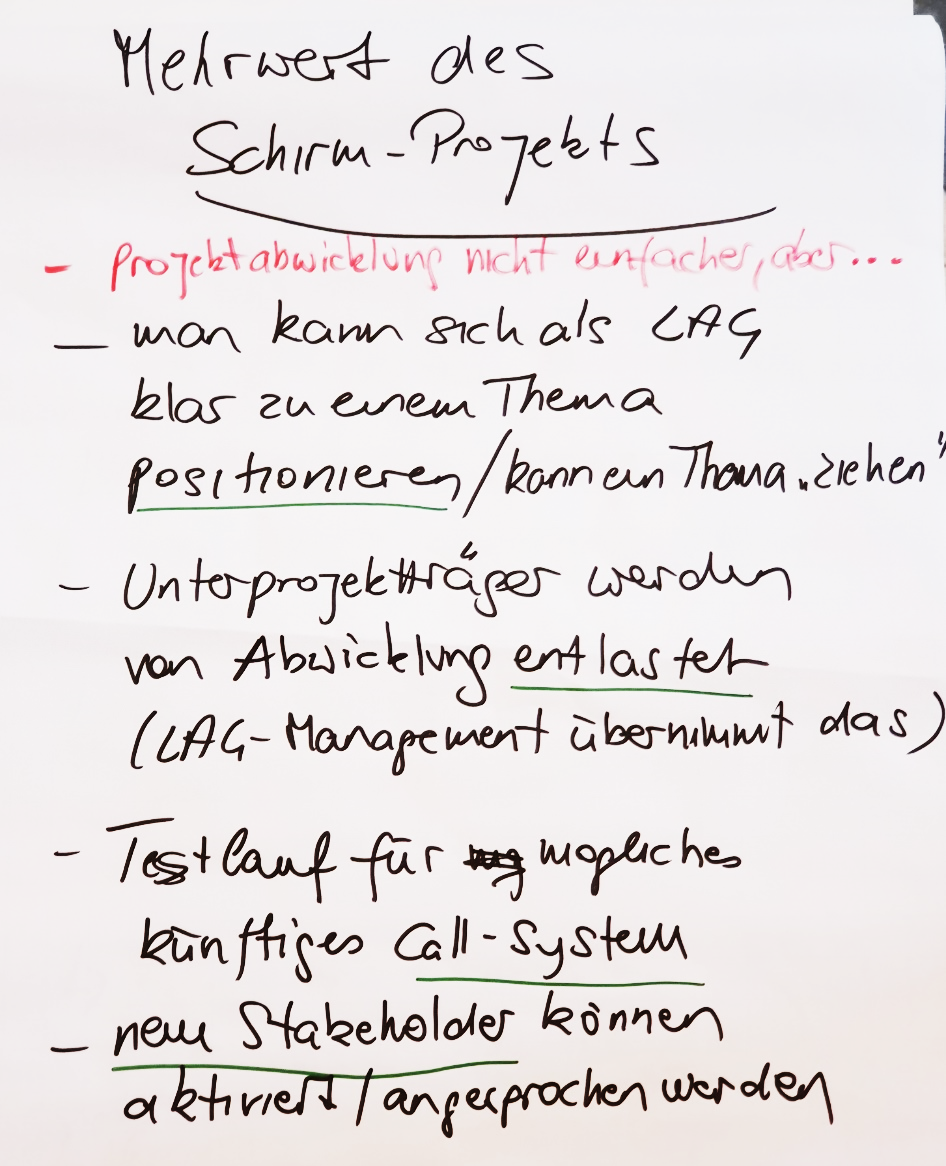 Mehrwert des
Schirm-Projekts
- Projektabwicklung nicht einfacher, aber...
- man kann sich als LAG
klar zu einem Thema
positionieren / kann ein Thema „ziehen"
- Unterprojektträger werden
von Abwicklung entlastet
(LAG-Management übernimmt das)
- Testlauf für mögliches
künftiges Call-System
- neue Stakeholder können
aktiviert / angesprochen werden